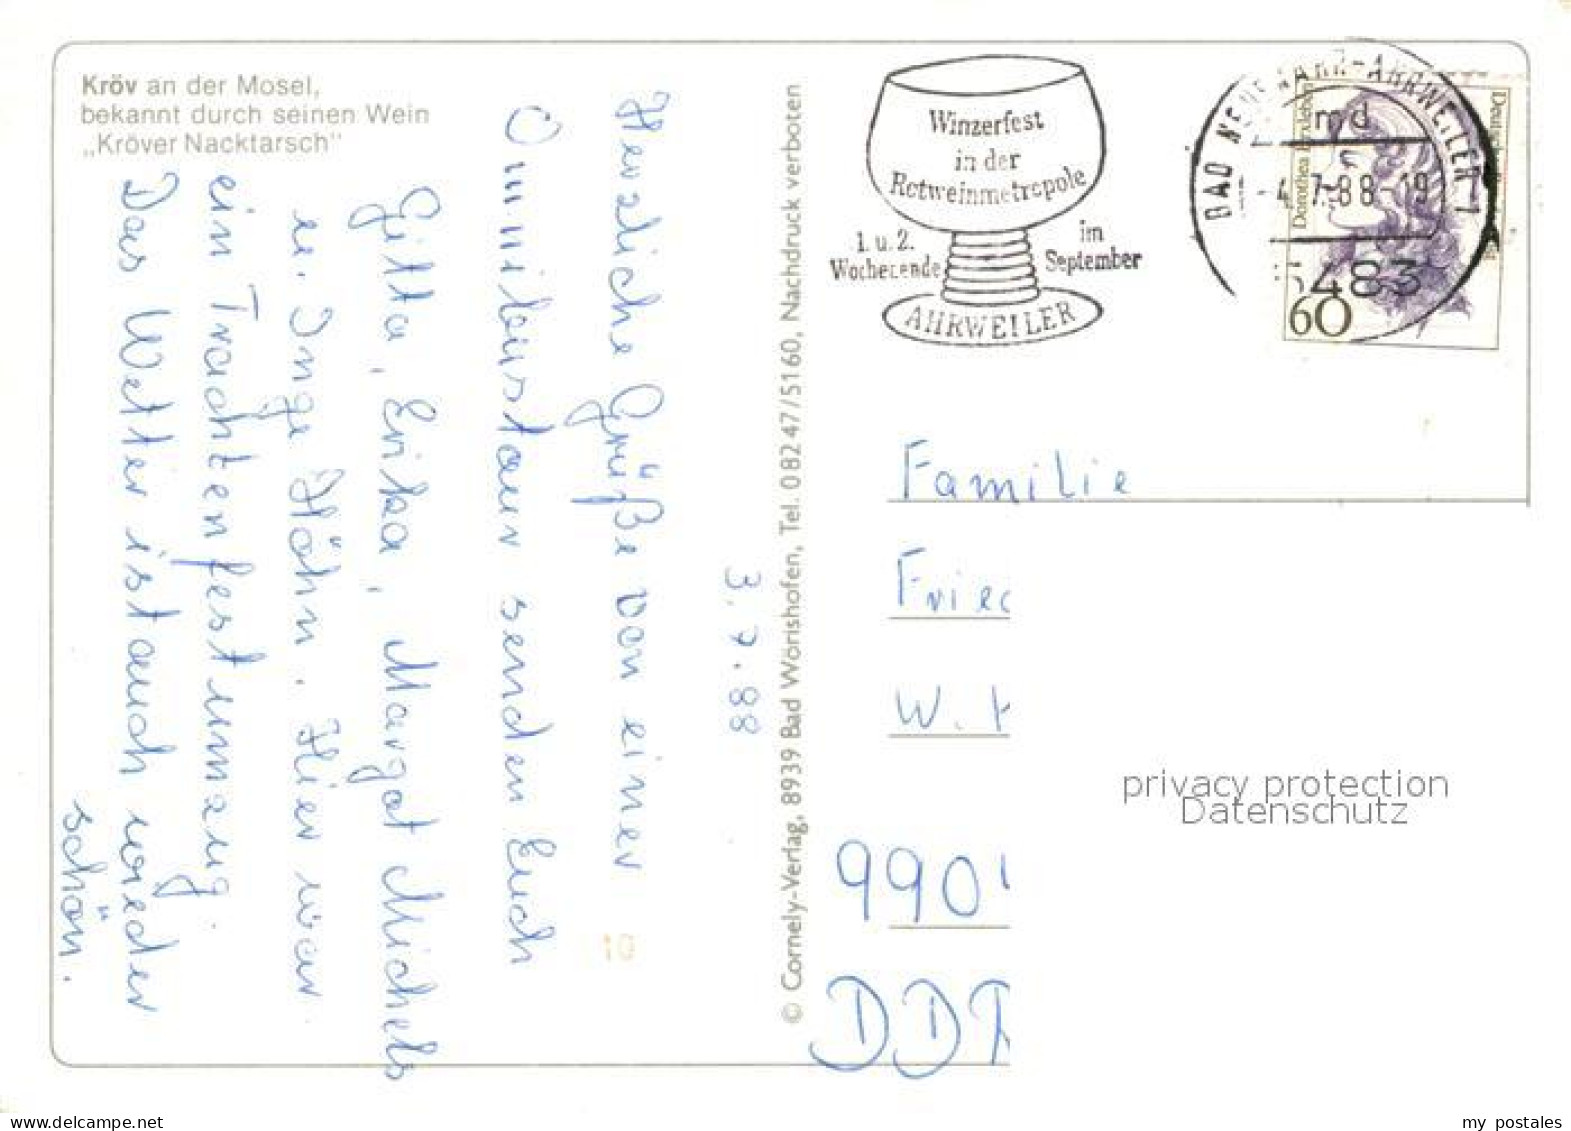 Kröv an der Mosel,
bekannt durch seinen Wein
„Kröver Nacktarsch"
3.7.88
Herzliche Grüße von einer
Omnibustour senden Euch
Gitta, Erika, Margot Michels
u. Inge Höhn. Hier war
ein Trachtenfestumzug.
Das Wetter ist auch wieder
schön.
10
© Cornely-Verlag, 8939 Bad Wörishofen, Tel. 08247/5160, Nachdruck verboten
Winzerfest
in der
Rotweinmetropole
1. u. 2.
Wochenende
im
September
AHRWEILER
BAD NEUENAHR-AHRWEILER 1
md
-4.7.88-19
5483
Dorothea Erxleben
Deutsche
60
Familie
Fried
W.
990
DDR
privacy protection
Datenschutz
my postales